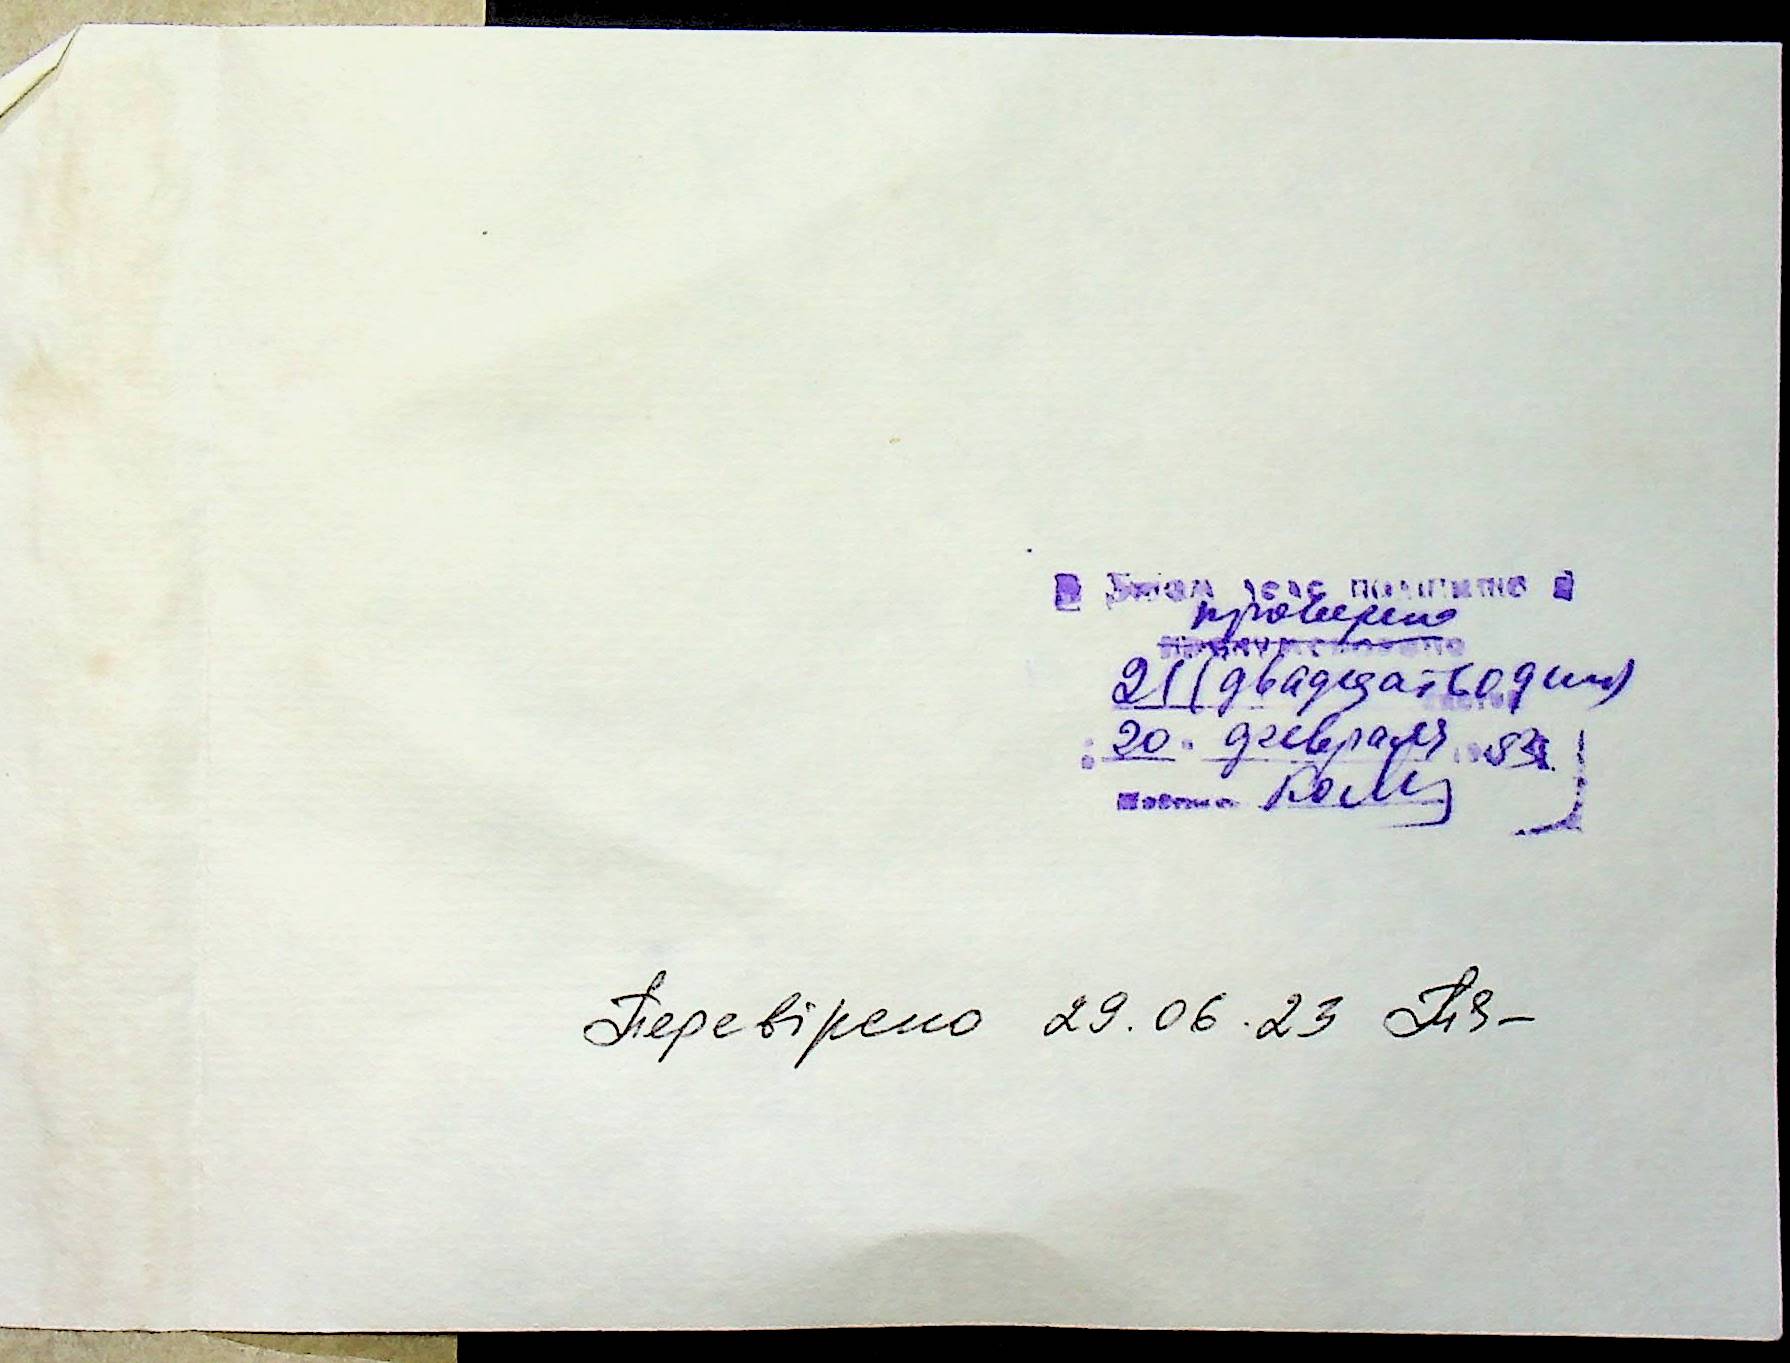 В этом деле подшито
проверено
пронумеровано
21 (двадцать один)
листов
20 февраля 1983 г.
Подпись
Перевірено 29.06.23